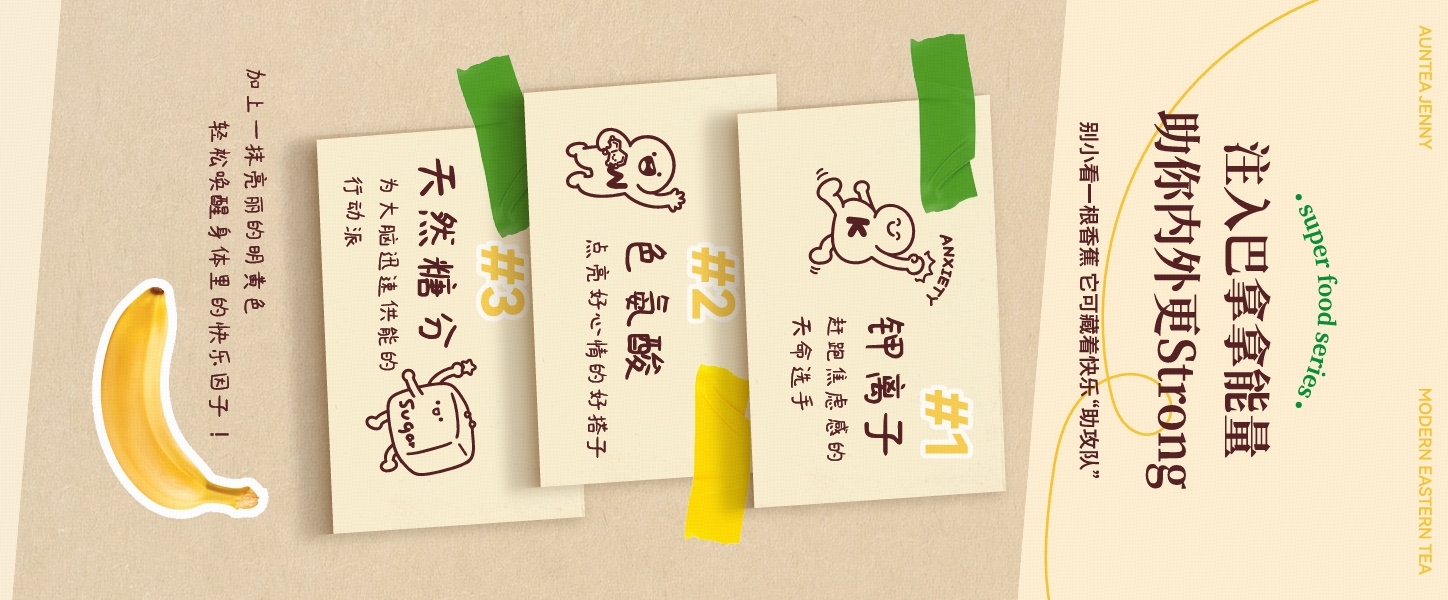 AUNTEA JENNY
MODERN EASTERN TEA
super food series
注入巴拿拿能量
助你内外更Strong
别小看一根香蕉 它可藏着快乐“助攻队”
#1
钾离子
赶跑焦虑感的
天命选手
ANXIETY
K
#2
色氨酸
点亮好心情的好搭子
W
#3
天然糖分
为大脑迅速供能的
行动派
Sugar
加上一抹亮丽的明黄色
轻松唤醒身体里的快乐因子！